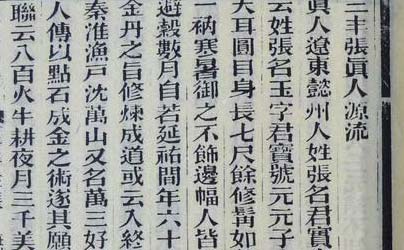 三丰張眞人源流
眞人遼東懿州人姓張名君實
云姓張名玉字君寶號元元子
大耳圓目身長七尺餘修髯如
一衲寒暑御之不飾邊幅人皆
避穀數月自若延祐間年六十
金丹之旨修煉成道或云入終
秦淮漁戸沈萬山又名萬三好
人傳以點石成金之術遂其願
聯云八百火牛耕夜月三千美